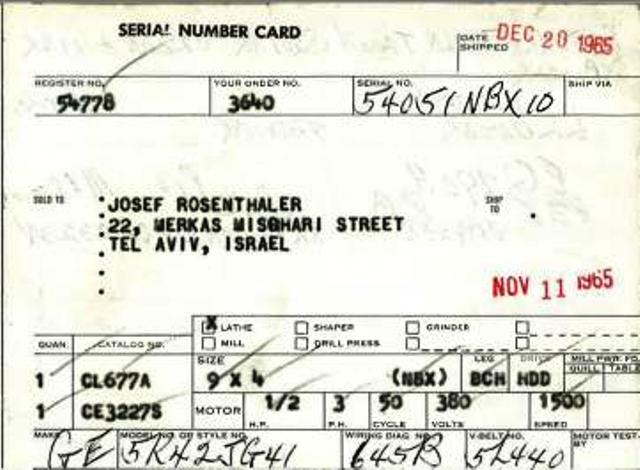 SERIAL NUMBER CARD
DATE SHIPPED DEC 20 1965
REGISTER NO. YOUR ORDER NO. SERIAL NO. SHIP VIA
54778 3640 54051NBX10
SOLD TO SHIP TO
JOSEF ROSENTHALER
22, MERKAS MISGHARI STREET
TEL AVIV, ISRAEL
NOV 11 1965
X LATHE SHAPER GRINDER
MILL DRILL PRESS
QUAN. CATALOG NO. SIZE LEG DRIVE MILL PWR. FD.
QUILL TABLE
1 CL677A 9 X 4 (NBX) BCH HDD
1 CE3227S MOTOR 1/2 3 50 380 1500
H.P. P.H. CYCLE VOLTS SPEED
MAKE MODEL NO. OR STYLE NO. WIRING DIAG. NO. V-BELT.NO. MOTOR TEST BY
GE 5K42JG41 645B 5L440